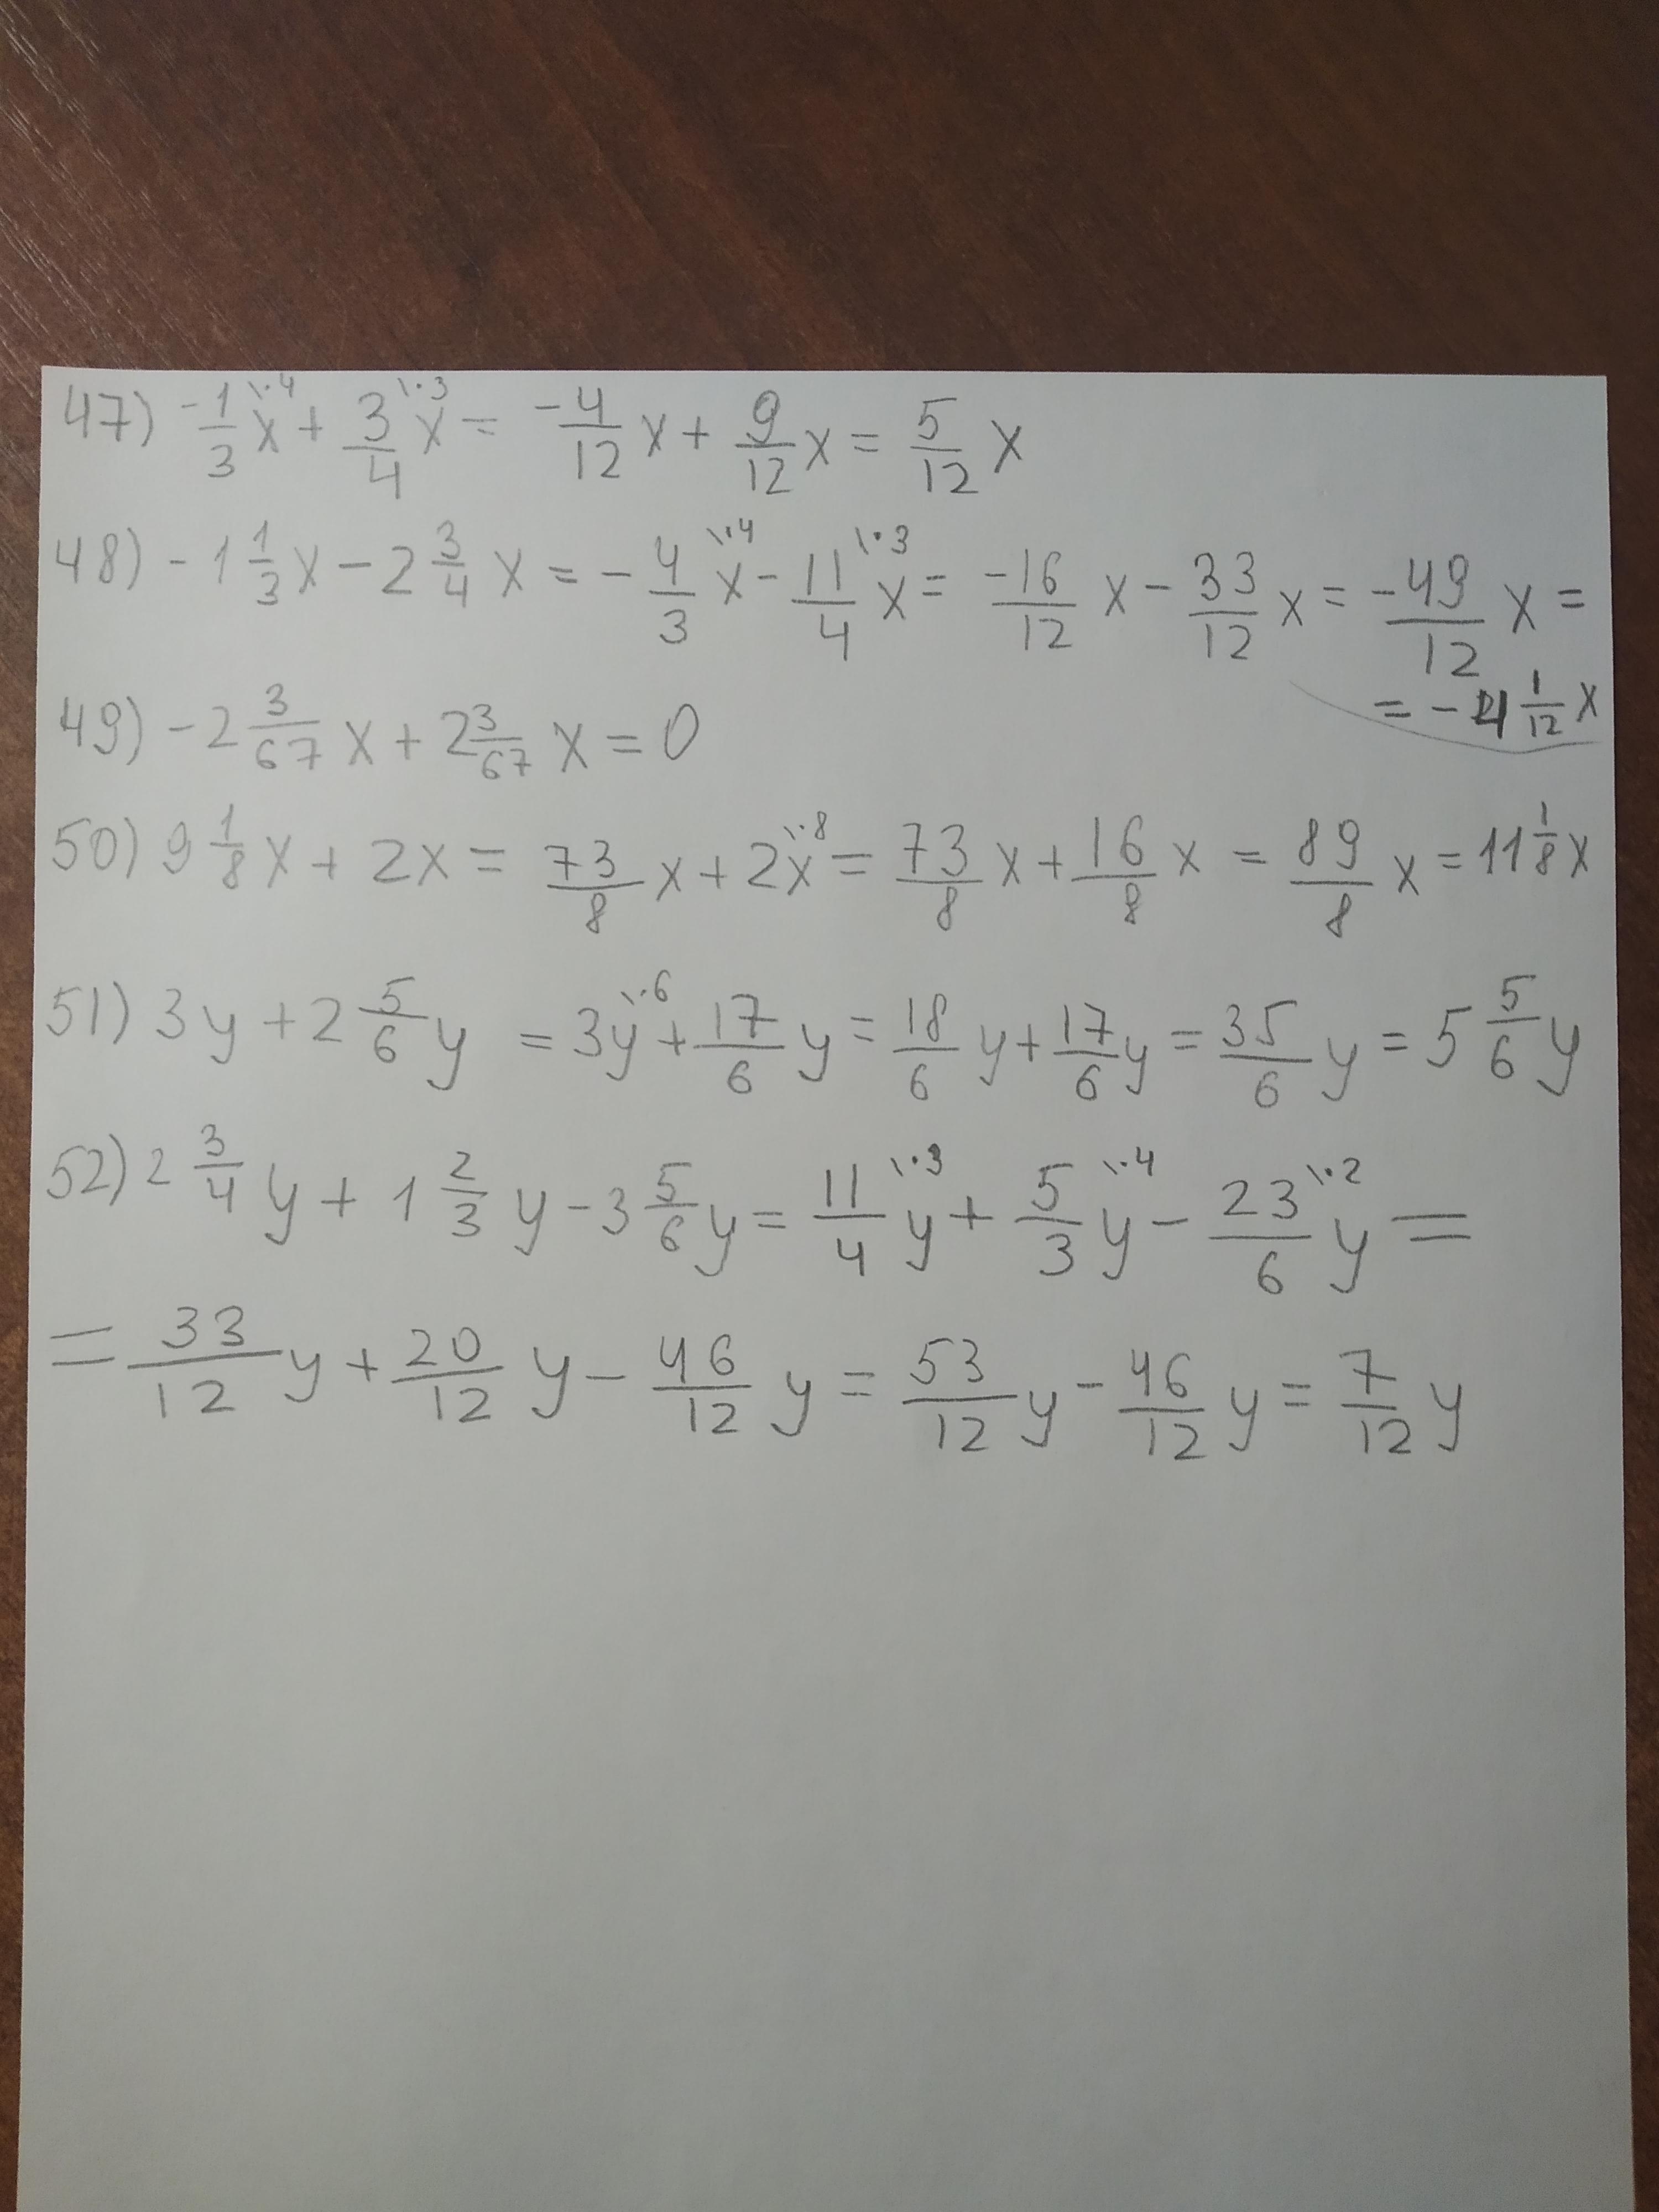 47) -1/3 x \·4 + 3/4 x \·3 = -4/12 x + 9/12 x = 5/12 x
48) - 1 1/3 x - 2 3/4 x = - 4/3 x \·4 - 11/4 x \·3 = -16/12 x - 33/12 x = -49/12 x =
= - 4 1/12 x
49) - 2 3/67 x + 2 3/67 x = 0
50) 9 1/8 x + 2x = 73/8 x + 2x \·8 = 73/8 x + 16/8 x = 89/8 x = 11 1/8 x
51) 3y + 2 5/6 y = 3y \·6 + 17/6 y = 18/6 y + 17/6 y = 35/6 y = 5 5/6 y
52) 2 3/4 y + 1 2/3 y - 3 5/6 y = 11/4 y \·3 + 5/3 y \·4 - 23/6 y \·2 =
= 33/12 y + 20/12 y - 46/12 y = 53/12 y - 46/12 y = 7/12 y